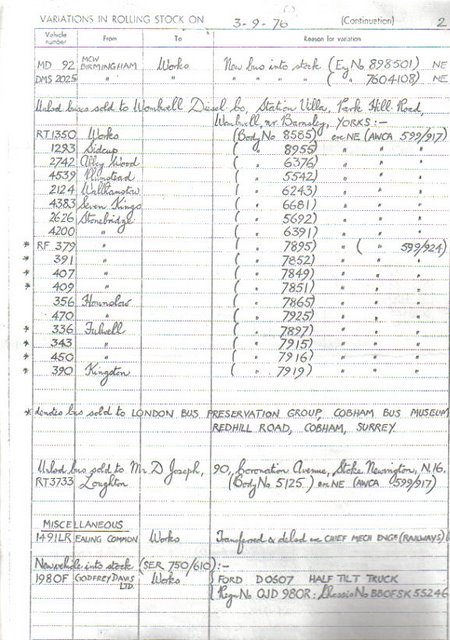 VARIATIONS IN ROLLING STOCK ON 3-9-76 (Continuation) 2
Vehicle number From To Reason for variation
MD 92 MCW BIRMINGHAM Works New bus into stock (Eng No 898501) NE
DMS 2025 " " " " " " ( " " 7604108) NE
Unlsd buses sold to Wombwell Diesel Co, Station Villa, Park Hill Road,
Wombwell, nr. Barnsley, YORKS :-
RT1350 Works (Body No 8585) ex NE (AWCA 599/917)
1293 Sidcup ( " 8955) " " "
2742 Abbey Wood ( " 6376) " " "
4539 Plumstead ( " 5542) " " "
2124 Walthamstow ( " 6243) " " "
4383 Seven Kings ( " 6681) " " "
2626 Stonebridge ( " 5692) " " "
4200 " ( " 6391) " " "
* RF 379 " ( " 7895) " ( " 599/924)
* 391 " ( " 7852) " " "
* 407 " ( " 7849) " " "
* 409 " ( " 7851) " " "
356 Hounslow ( " 7865) " " "
470 " ( " 7925) " " "
* 336 Fulwell ( " 7897) " " "
* 343 " ( " 7915) " " "
* 450 " ( " 7916) " " "
* 390 Kingston ( " 7919) " " "
* denotes bus sold to LONDON BUS PRESERVATION GROUP, COBHAM BUS MUSEUM
REDHILL ROAD, COBHAM, SURREY.
Unlsd bus sold to Mr. D Joseph, 90, Coronation Avenue, Stoke Newington, N.16.
RT3733 Loughton (Body No 5125) ex NE (AWCA 599/917)
MISCELLANEOUS
1491LR EALING COMMON Works Transferred & delsd CHIEF MECH ENGR (RAILWAYS)
New vehicle into stock (SER 750/610) :-
1980F GODFREY DAVIS LTD. Works FORD D0607 HALF TILT TRUCK
Regn No OJD 980R: Chassis No BBOFSK 55246